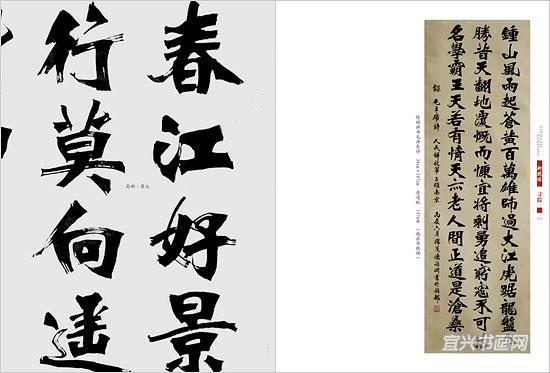 春江好景
行莫向遥
局部·原大
鍾山風雨起蒼黃百萬雄師過大江虎踞龍盤今
勝昔天翻地覆慨而慷宜將剩勇追窮寇不可沽
名學霸王天若有情天亦老人間正道是滄桑
錄 毛主席詩 人民解放軍占領南京 丙辰六月
书毛泽东诗 1976年
宜兴书画网